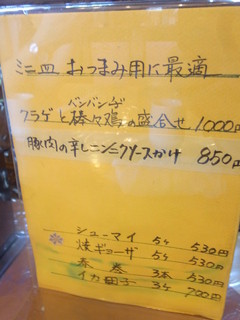 ミニ皿 おつまみ用に最適
バンバンヂー
クラゲと棒々鶏の盛合せ 1000円
豚肉の辛しニンニクソースかけ 850円
シューマイ 5ケ 530円
焼ギョーザ 5ケ 530円
春巻 3本 530円
イカ団子 3ケ 700円